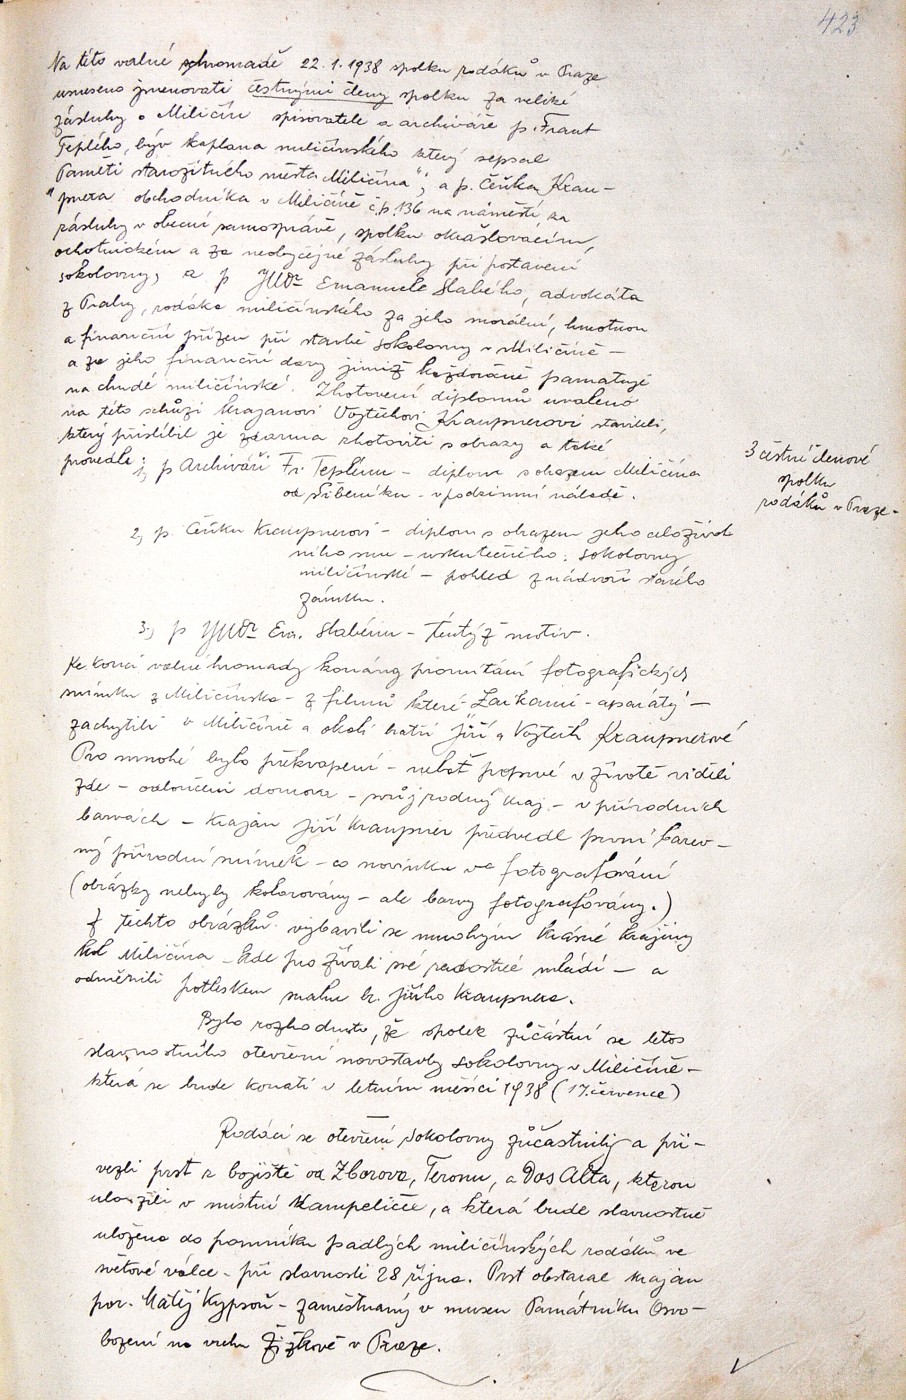 423
Na této valné schromadě 22.1.1938 spolku rodáků v Praze
usneseno jmenovati čestnými členy spolku za veliké
zásluhy o Miličín spisovatele a archiváře p. Frant
Teplého, býv kaplana miličínského který sepsal
"Paměti starožitného města Miličína"; a p. Čeňka Krau-
pnera obchodníka v Miličíně č.p. 136 na náměstí za
zásluhy v obecní samosprávě, spolku okrašlovacím,
ochotnickém a za neobyčejné zásluhy při postavení
sokolovny, a p JUDr Emanuele Slabého, advokáta
z Prahy, rodáka miličínského za jeho morální, hmotnou
a finanční přízeň při stavbě sokolovny v Miličíně –
a za jeho finanční dary jimiž každoročně pamatuje
na chudé miličínské. Zhotovení diplomů uvaleno
na této schůzi krajanovi Vojtěchovi Kraupnerovi staviteli,
který přislíbil je zdarma zhotoviti s obrazy a také
provedla:
1, p Archiváři Fr. Teplému – diplom s obrazem Miličína
od Šibeníku – v podzimní náladě.
3 čestní členové
spolku
rodáků v Praze –
2, p. Čeňku Kraupnerovi – diplom s obrazem jeho celoživot
ního snu – uskutečného: sokolovny
miličínské – pohled z nádvoří starého
zámku.
3, p JUDr Em. Slabému – tentýž motiv.
Ke konci valné hromady konány promítání fotografických
snímku z Miličínska – z filmů které Laikami – aparáty –
zachytili v Miličíně a okolí bratři Jiří a Vojtěch Kraupnerové
Pro mnohé bylo překvapení – neboť poprvé v životě viděli
zde – odloučeni domova – svůj rodný kraj – v přírodních
barvách – Krajan Jiří Kraupner předvedl první barev–
ný přírodní snímek – co novinku ve fotografování
(obrázky nebyly kolorovány – ale barvy fotografovány.)
Z těchto obrázků vybavili se mnohým krásné krajiny
kol Miličína – kde prožívali své radostné mládí – a
odměnili potleskem snahu br. Jiřího Kraupnera.
Bylo rozhodnuto, že spolek zůčástní se letos
slavnostního otevření novostavby sokolovny v Miličíně –
která se bude konati v letním měsíci 1938 (17. července)
Rodáci se otevření Sokolovny zůčastnili a při–
vezli prst z bojiště od Zborova, Teronu, a Dos Alta, kterou
uložili v místní Kampeličce, a která bude slavnostně
uložena do pomníku padlých miličínských rodáků ve
světové válce – při slavnosti 28 října. Prst obstaral krajan
por. Matěj Kypsoň – zaměstnaný v museu Památníku Osvo–
bození na vrchu Žižkově v Praze.